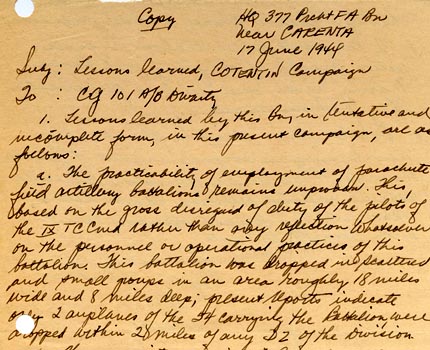 Copy
HQ 377 Prcht FA Bn
Near CARENTA
17 June 1944
Subj: Lessons learned, COTENTIN Campaign
To: CG 101 A/B Div
1. Lessons learned by this Bn, in tentative and
incomplete form, in this present campaign, are as
follows:
a. The practicability of employment of parachute
field artillery battalions remains unproven. This,
based on the gross disregard of duty of the pilots of
the IX TCCmd rather than any reflection whatsoever
on the personnel or operational practices of this
battalion. This battalion was dropped in scattered
and small groups in an area roughly 18 miles
wide and 8 miles deep; present reports indicate
only 2 airplanes of the 54 carrying the Battalion were
dropped within 2 miles of any DZ of the Division